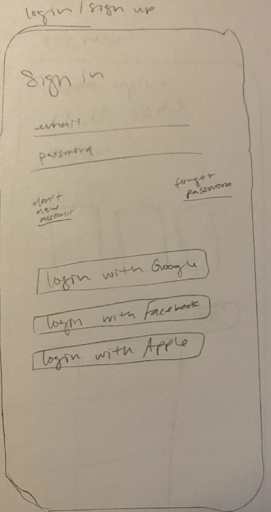 login/sign up
Sign in
email
password
don't
have
account
forgot
password
login with Google
login with Facebook
login with Apple